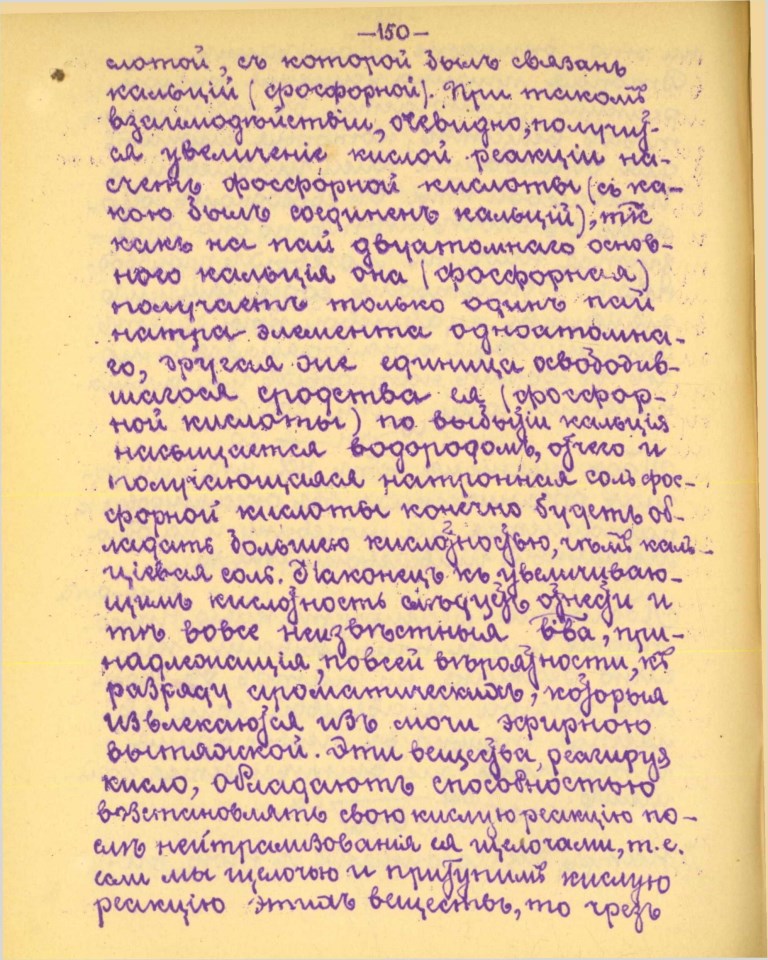 —150—
слотой, съ которой былъ связанъ
кальцій (фосфорной). При такомъ
взаимодѣйствіи, очевидно, получит-
ся увеличеніе кислой реакціи на-
счетъ фосфорной кислоты (съ ка-
кою былъ соединенъ кальцій), тк
какъ на пай двуатомнаго основ-
ного кальція она (фосфорная)
получаетъ только одинъ пай
натра элемента одноатомна-
го, другая же единица освободив-
шагося сродства ея (фосфор-
ной кислоты) по выбытіи кальція
насыщается водородомъ, отчего и
получающаяся натронная соль фос-
форной кислоты конечно будетъ об-
ладать большею кислотностью, чѣмъ каль-
ціевая соль. Наконецъ къ увеличиваю-
щимъ кислотность слѣдуетъ отнести и
тѣ вовсе неизвѣстныя в-ва, при-
надлежащія, по всей вѣроятности, къ
разряду ароматическихъ, которыя
извлекаются изъ мочи эфирною
вытяжкой. Эти вещества, реагируя
кисло, обладаютъ способностью
возстановлять свою кислую реакцію по-
слѣ нейтрализованія ея щелочами, т.е.
если мы щелочью и притупимъ кислую
реакцію этихъ веществъ, то чрезъ